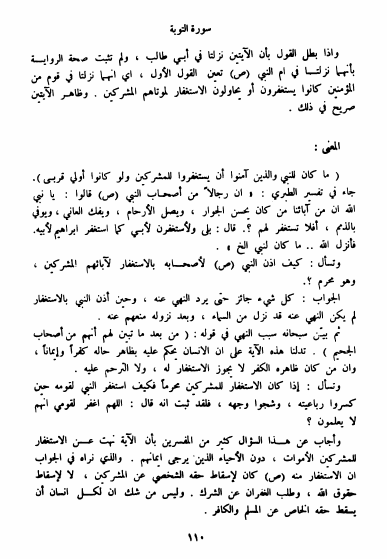 سورة التوبة
واذا بطل القول بأن الآيتين نزلتا في أبي طالب ، ولم تثبت صحة الرواية
بأنهما نزلتـا في ام النبي (ص) تعين القول الأول ، اي انهما نزلتا في قوم من
المؤمنين كانوا يستغفرون أو يحاولون الاستغفار لموتاهم المشركين . وظاهر الآيتين
صريح في ذلك .
المعنى :
( ما كان للنبي والذين آمنوا أن يستغفروا للمشركين ولو كانوا أولي قربى ).
جاء في تفسير الطبري : « ان رجالاً من أصحاب النبي (ص) قالوا : يا نبي
الله ان من آبائنا من كان يحسن الجوار ، ويصل الأرحام ، ويفك العاني ، ويوفي
بالذمم ، أفلا نستغفر لهم ؟. قال : بلى ولأستغفرن لأبي كما استغفر ابراهيم لأبيه.
فأنزل الله .. ما كان لنبي الخ » .
وتسأل : كيف اذن النبي (ص) لأصحابه بالاستغفار لآبائهم المشركين ،
وهو محرم ؟.
الجواب : كل شيء جائز حتى يرد النهي عنه ، وحين أذن النبي بالاستغفار
لم يكن النهي عنه قد نزل من السماء ، وبعد نزوله منعهم عنه .
ثم بيّن سبحانه سبب النهي في قوله : ( من بعد ما تبين لهم أنهم من أصحاب
الجحيم ) . تدلنا هذه الآية على ان الانسان يحكم عليه بظاهر حاله كفراً وإيماناً ،
وان من كان ظاهره الكفر لا يجوز الاستغفار له ، ولا الترحم عليه .
وتسأل : إذا كان الاستغفار للمشركين محرماً فكيف استغفر النبي لقومه حين
كسروا رباعيته ، وشجوا وجهه ، فلقد ثبت انه قال : اللهم اغفر لقومي انهم
لا يعلمون ؟
وأجاب عن هـذا السؤال كثير من المفسرين بأن الآية نهت عـن الاستغفار
للمشركين الأموات ، دون الأحياء الذين يرجى ايمانهم . والذي نراه في الجواب
ان الاستغفار منه (ص) كان لإسقاط حقه الشخصي عن المشركين ، لا لإسقاط
حقوق الله ، وطلب الغفران عن الشرك . وليس من شك ان لكـل انسان أن
يسقط حقه الخاص عن المسلم والكافر .
١١٠